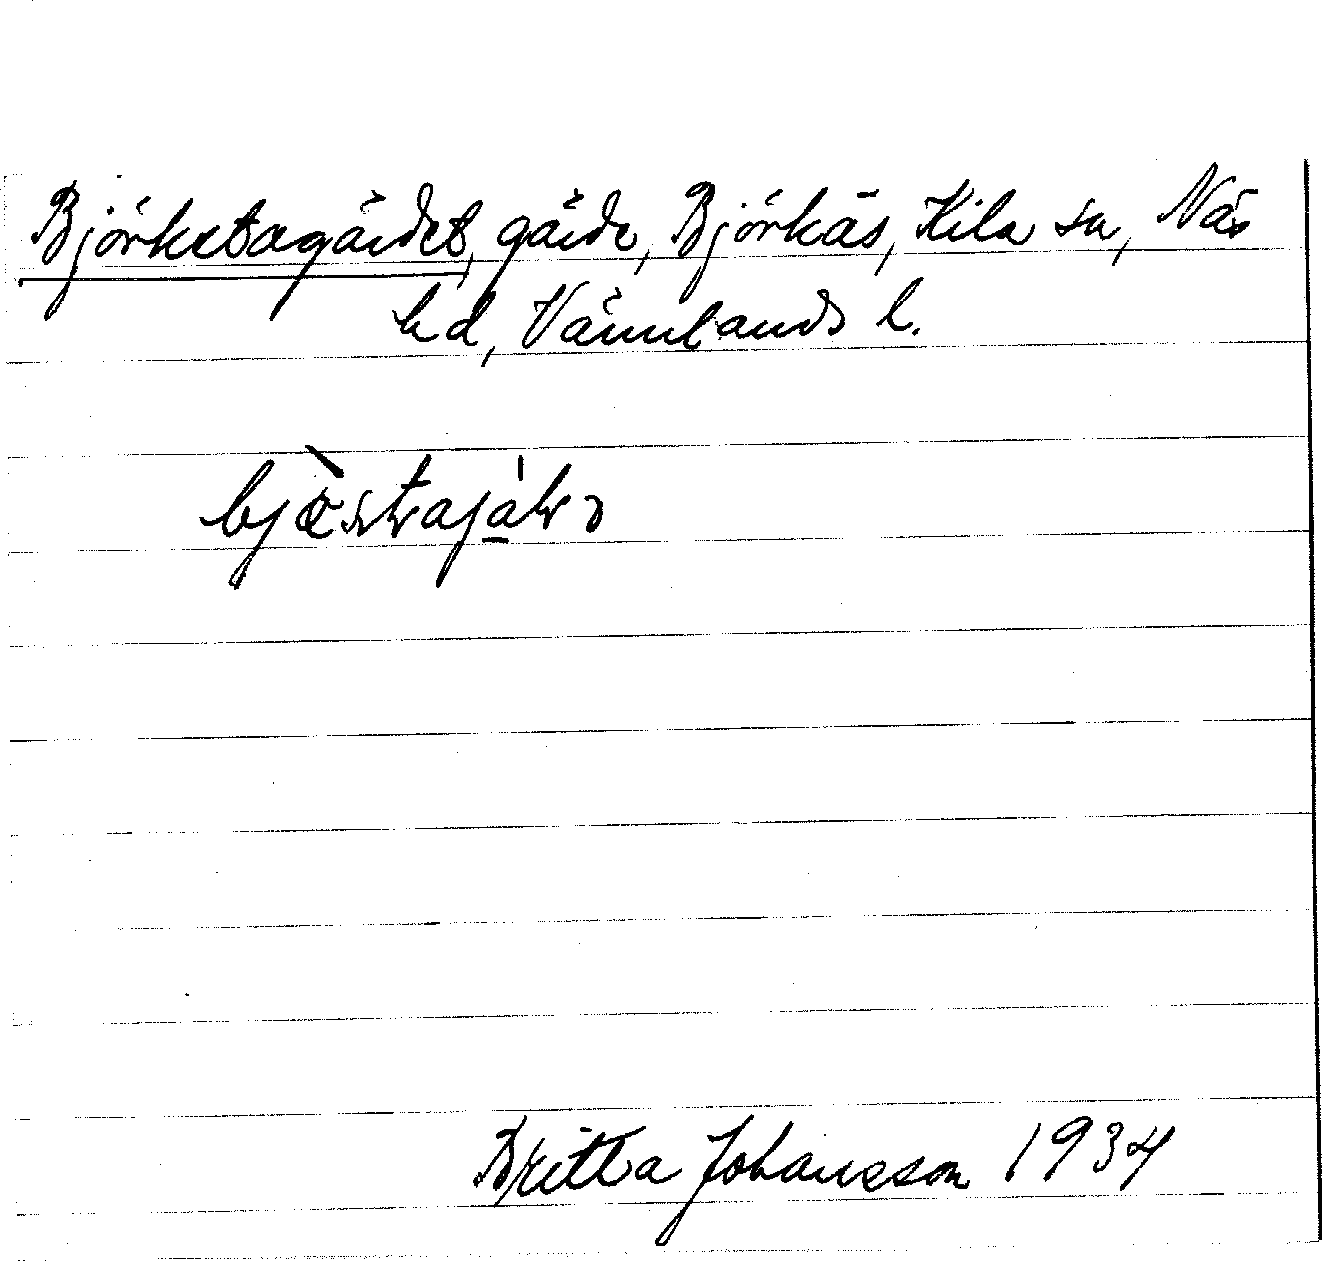 Björketagärdet, gärde, Björkås, Kila sn, Näs
hd, Värmlands l.
Britta Johansson 1934